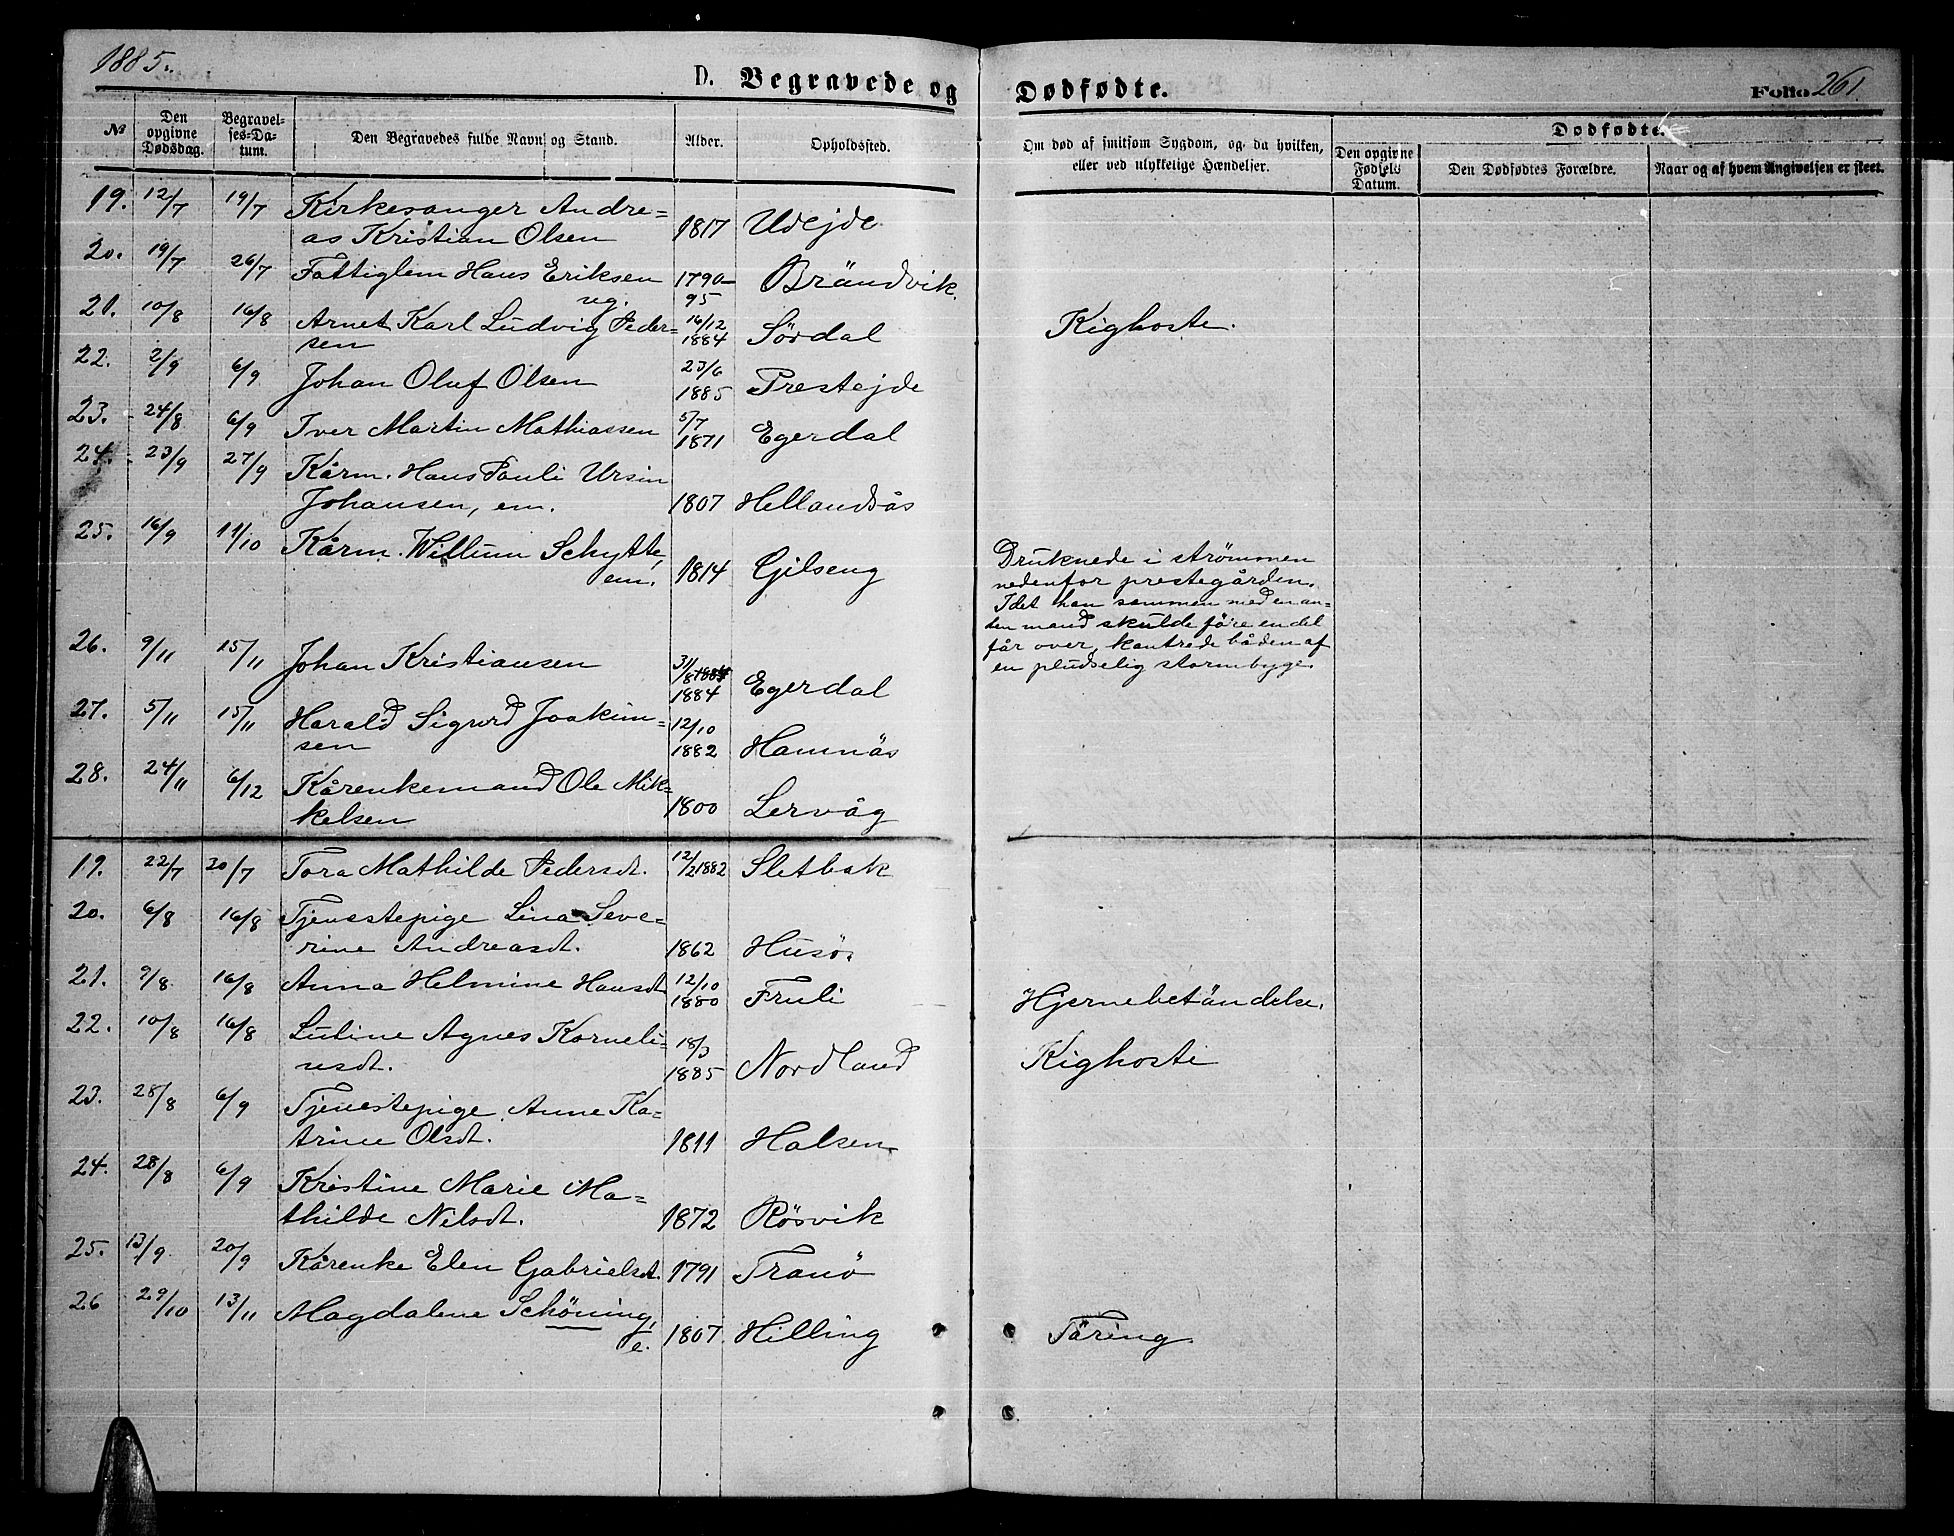 1885.
D. Begravede og Dødfødte.
Folio 261
№ Den opgivne Dødsdag. Begravelses-Datum. Den Begravedes fulde Navn og Stand. Alder. Opholdssted. Om død af smitsom Sygdom, og da hvilken, eller ved ulykkelige Hændelser. Dødfødte. Den opgivne Fødsels Datum. Den Dødfødtes Forældre. Naar og af hvem Angivelsen er skeet.
19. 12/7 19/7 Kirkesanger Andre=
as Kristian Olsen 1817 Udejde
20. 19/7 26/7 Fattiglem Hans Eriksen 1790-
ug. 95 Brändvik.
21. 10/8 16/8 Arnet Karl Ludvig Peder= 16/12
sen 1884 Sördal Kighoste.
22. 2/9 6/9 Johan Oluf Olsen 23/6
1885 Prestejde
23. 24/8 6/9 Iver Martin Mathiassen 5/7
1871 Egerdal
24. 23/9 27/9 Kårm. Hans Pauli Ursin
Johansen, em. 1807 Hellandsås
25. 16/9 11/10 Kårm. Willum Schytte,
em. 1814 Gilseng
Druknede i strømmen
nedenfor prestegården.
Idet han sammen med en an=
den mand skulde före en del
får over, kantrede båden af
en pludselig stormbyge.
26. 9/11 15/11 Johan Kristiansen 31/8
1884 Egerdal
27. 5/11 15/11 Harald Sigurd Joakim= 12/10
sen 1882 Hamnäs
28. 24/11 6/12 Kårenkemand Ole Mik=
kelsen 1800 Lervåg
19. 22/7 30/7 Tora Mathilde Pedersdt. 12/2 1882 Sletbak
20. 6/8 16/8 Tjenestepige Lina Seve=
rine Andreasdt. 1862 Husö.
21. 9/8 16/8 Anna Helmine Hansdt 12/10
1880 Fruli Hjernebetändelse.
22. 10/8 16/8 Lutine Agnes Korneli= 18/3
usdt. 1885 Nordland Kighoste
23. 28/8 6/9 Tjenestepige Anne Ka=
trine Olsdt. 1811 Halsen
24. 28/8 6/9 Kristine Marie Ma=
thilde Nilsdt. 1872 Røsvik
25. 13/9 20/9 Kårenke Elen Gabrielsdt. 1791 Tranö
26 29/10 13/11 Magdalene Schöning,
e. 1807. Hilling Täring